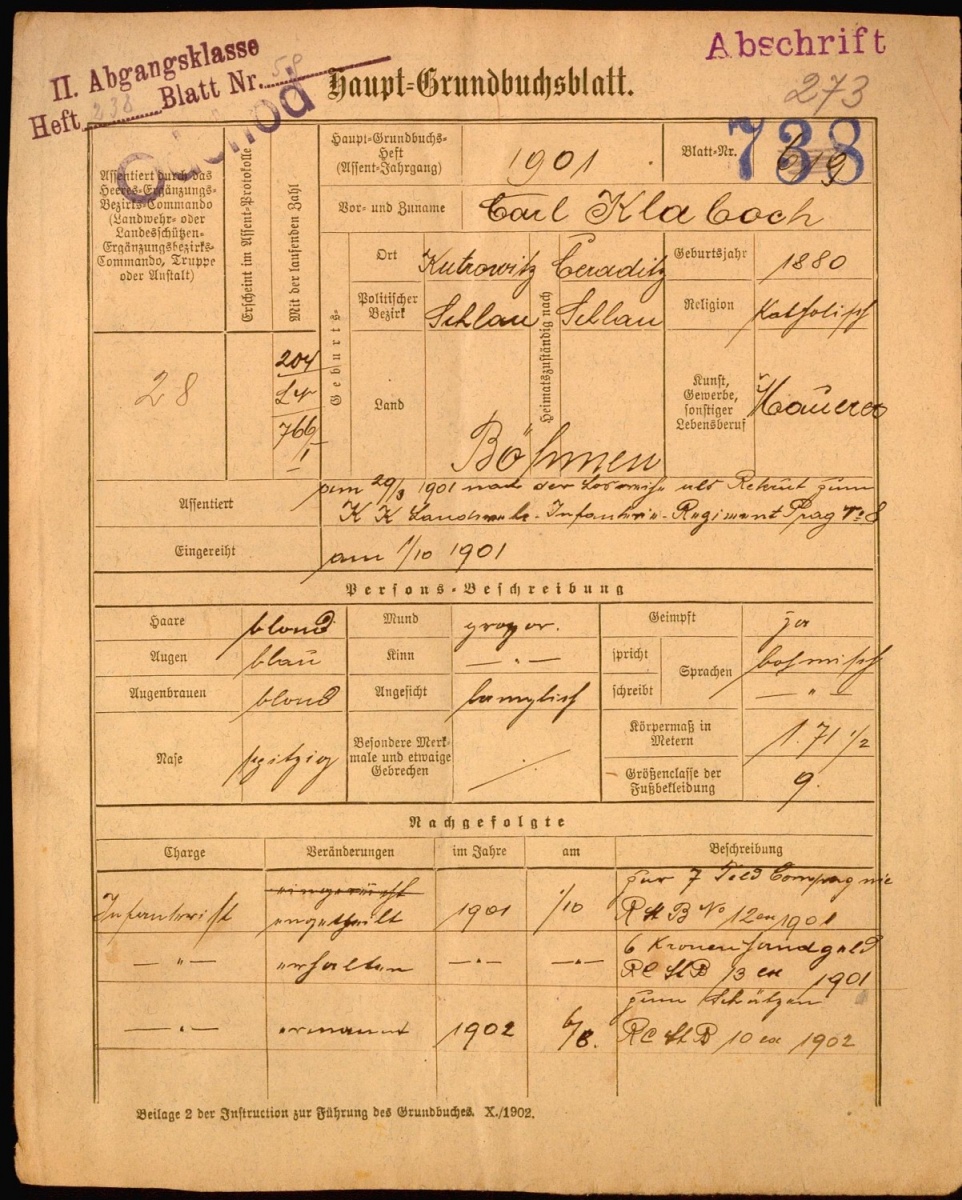 II. Abgangsklasse
Heft 238 Blatt Nr. 58
Haupt-Grundbuchsblatt.
Abschrift
273
Assentiert durch das
Heeres-Ergänzungs-
Bezirks-Commando
(Landwehr- oder
Landesschützen-
Ergänzungsbezirks-
Commando, Truppe
oder Anstalt)
28
Erscheint im Assent-Protokolle
Mit der laufenden Zahl
204
766
Haupt-Grundbuchs-
Heft
(Assent-Jahrgang)
1901
Blatt-Nr.
738
Vor- und Zuname
Carl Klaboch
Geburts-
Ort
Kutrowitz
Heimatszuständig nach
Ceraditz
Geburtsjahr
1880
Politischer
Bezirk
Schlau
Schlau
Religion
Katholisch
Land
Böhmen
Kunst,
Gewerbe,
sonstiger
Lebensberuf
Häuer
Assentiert
am 29/3 1901 nach der Losreihe als Rekrut zum
K K Landwehr-Infanterie-Regiment Prag No 8
Eingereiht
am 1/10 1901
Persons-Beschreibung
Haare
blond
Mund
Geimpft
ja
Augen
blau
Kinn
— " —
spricht
Sprachen
böhmisch
Augenbrauen
blond
Angesicht
länglich
schreibt
— " —
Nase
spitzig
Besondere Merk-
male und etwaige
Gebrechen
Körpermaß in
Metern
1.71 1/2
Größenclasse der
Fußbekleidung
9.
Nachgefolgte
Charge
Veränderungen
im Jahre
am
Beschreibung
Infanterist
eingetheilt
1901
1/10
zur 7 Feld Compagnie
No 12 ex 1901
— " —
erhalten
— " —
— " —
6 Kronen Handgeld
RC StB 13 ex 1901
— " —
ernannt
1902
6/8.
zum Schützen
RC StB 10 ex 1902
Beilage 2 der Instruction zur Führung des Grundbuches. X./1902.